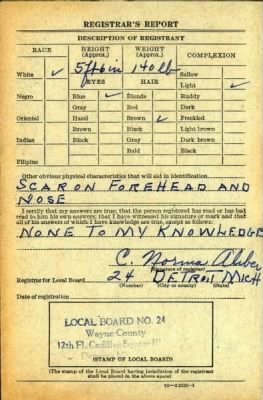 REGISTRAR'S REPORT
DESCRIPTION OF REGISTRANT
RACE HEIGHT (Approx.) WEIGHT (Approx.) COMPLEXION
White ✓ 5ft6in 140lb Sallow
EYES HAIR Light ✓
Negro Blue ✓ Blonde Ruddy
Gray Red Dark
Oriental Hazel Brown ✓ Freckled
Brown Black Light brown
Indian Black Gray Dark brown
Bald Black
Filipino
Other obvious physical characteristics that will aid in identification
SCAR ON FOREHEAD AND
NOSE
I certify that my answers are true; that the person registered has read or has had
read to him his own answers; that I have witnessed his signature or mark and that
all of his answers of which I have knowledge are true, except as follows:
NONE TO MY KNOWLEDGE
C. Norma
(Signature of registrar)
Registrar for Local Board 24 DETROIT MICH
(Number) (City or county) (State)
Date of registration
LOCAL BOARD NO. 24
Wayne County
12th Fl. Cadillac Square
(STAMP OF LOCAL BOARD)
(The stamp of the Local Board having jurisdiction of the registrant
shall be placed in the above space.)